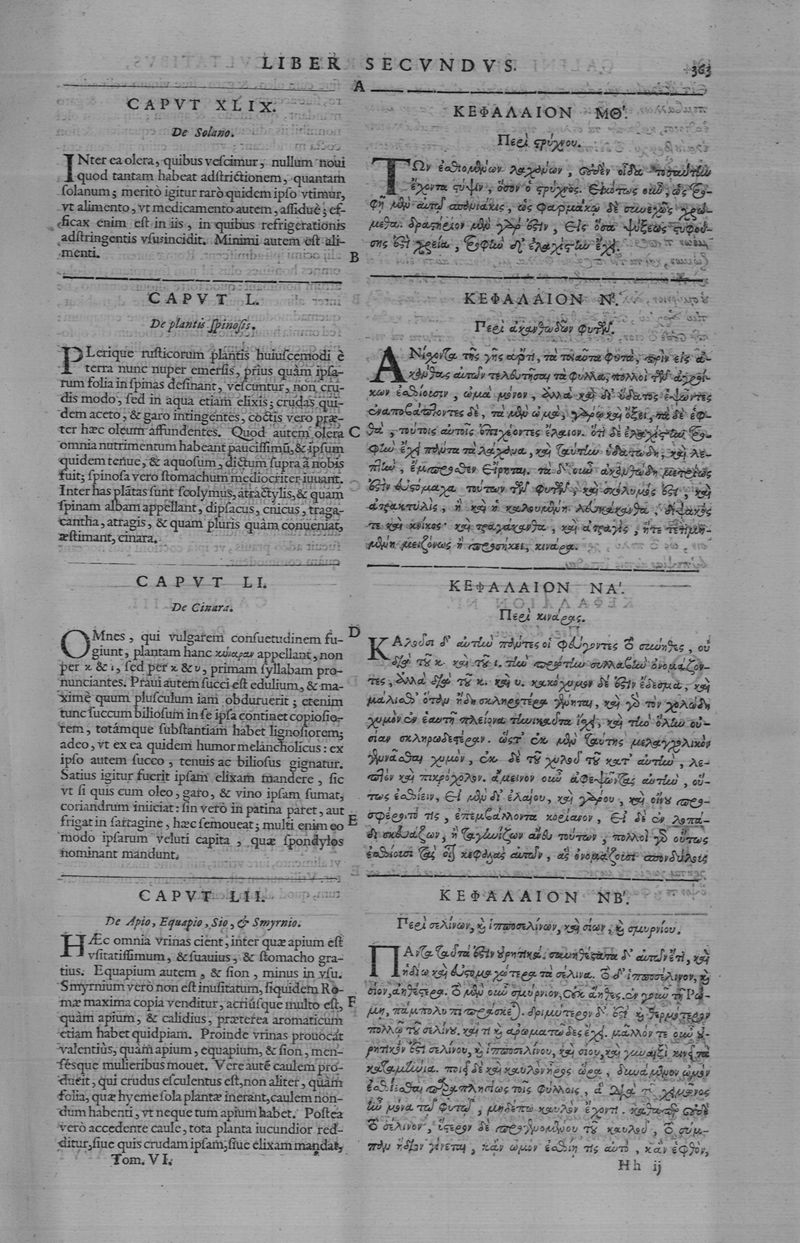 LIBER SECVNDVS. 363
A
CAPVT XLIX.
De Solano.
INter ea olera, quibus veſcimur, nullum noui
quod tantam habeat adſtrictionem, quantam
ſolanum; meritò igitur rarò quidem ipſo vtimur,
vt alimento, vt medicamento autem, aſſiduè; ef-
ficax enim eſt in iis, in quibus refrigerationis
adſtringentis vſus incidit. Minimi autem eſt ali-
menti.
B
CAPVT L.
De plantis ſpinoſis.
PLerique ruſticorum plantis huiuſcemodi è
terra nunc nuper emerſis, prius quàm ipſa-
rum folia in ſpinas deſinant, veſcuntur, non cru-
dis modo, ſed in aqua etiam elixis; crudas qui-
dem aceto, & garo intingentes, coctis vero præ-
ter hæc oleum affundentes. Quod autem olera
C
omnia nutrimentum habeant pauciſſimū, & ipſum
quidem tenue, & aquoſum, dictum ſupra à nobis
fuit; ſpinoſa vero ſtomachum mediocriter iuuant.
Inter has plātas ſunt ſcolymus, atractylis, & quam
ſpinam albam appellant, dipſacus, cnicus, traga-
cantha, atragis, & quam pluris quàm conueniat,
æſtimant, cinara.
CAPVT LI.
De Cinara.
D
OMnes, qui vulgarem conſuetudinem fu-
giunt, plantam hanc κινάραν appellant, non
per κ & ι, ſed per κ & υ, primam ſyllabam pro-
nunciantes. Praui autem ſucci eſt edulium, & ma-
ximè quum pluſculum iam obduruerit; etenim
tunc ſuccum bilioſum in ſe ipſa continet copioſio-
rem, totámque ſubſtantiam habet lignoſiorem;
adeo, vt ex ea quidem humor melancholicus: ex
ipſo autem ſucco, tenuis ac bilioſus gignatur.
Satius igitur fuerit ipſam elixam mandere, ſic
vt ſi quis cum oleo, garo, & vino ipſam ſumat,
coriandrum iniiciat: ſin verò in patina paret, aut
frigat in ſartagine, hæc ſemoueat; multi enim eo
E
modo ipſarum veluti capita, quæ ſpondylos
nominant mandunt.
CAPVT LII.
De Apio, Equapio, Sio, & Smyrnio.
HÆc omnia vrinas cient; inter quæ apium eſt
vſitatiſſimum, & ſuauius, & ſtomacho gra-
tius. Equapium autem, & ſion, minus in vſu.
Smyrnium verò non eſt inuſitatum, ſiquidem Ro-
mæ maxima copia venditur, acriúſque multo eſt,
F
quàm apium, & calidius, præterea aromaticum
etiam habet quidpiam. Proinde vrinas prouocat
valentiùs, quàm apium, equapium, & ſion, men-
ſéſque mulieribus mouet. Vere autē caulem pro-
ducit, qui crudus eſculentus eſt, non aliter, quàm
folia, quæ hyeme ſola plantæ inerant, caulem non-
dum habenti, vt neque tum apium habet. Poſtea
verò accedente caule, tota planta iucundior red-
ditur, ſiue quis crudam ipſam, ſiue elixam mandat,
Tom. VI.
ΚΕΦΑΛΑΙΟΝ ΜΘʹ.
Περὶ στρύχνου.
ΤΩν ἐσθιομένων λαχάνων, οὐδὲν οἶδα τοσαύτην
ἔχοντα στύψιν, ὅσον ὁ στρύχνος. εἰκότως οὖν, ὡς τρο-
φῇ μὲν αὐτῷ σπανιάκις, ὡς φαρμάκῳ δὲ συνεχῶς χρώ-
μεθα. δραστήριον μὲν γάρ ἐστιν, εἰς ὅσα ψύξεως στυφού-
σης ἐστὶ χρεία, τροφὴν δ' ἐλαχίστην ἔχει.
ΚΕΦΑΛΑΙΟΝ Νʹ.
Περὶ ἀκανθωδῶν φυτῶν.
ΑΝίσχοντα τῆς γῆς ἄρτι, τὰ τοιαῦτα φυτά, πρὶν εἰς ἀ-
κάνθας αὐτῶν τελευτῆσαι τὰ φύλλα, πολλοὶ τῶν ἀγροί-
κων ἐσθίουσιν, ὠμὰ μόνον, ἀλλὰ καὶ δι' ὕδατος ἕψοντες
ἐναποβάπτοντες δὲ, τὰ μὲν ὠμά, γάρῳ καὶ ὄξει, τὰ δὲ ἑφ-
θά, τούτοις αὐτοῖς ἐπιχέοντες ἔλαιον. ὅτι δὲ ἐλαχίστην τρο-
φὴν ἔχει πάντα τὰ λάχανα, καὶ ταύτην ὑδατώδη, καὶ λε-
πτὴν, ἔμπροσθεν εἴρηται. τὰ δ' οὖν ἀκανθώδη μετρίως
ἐστὶν εὐστόμαχα. τούτων τῶν φυτῶν, καὶ σκόλυμός ἐστι, καὶ
ἀτρακτυλὶς, ἥ καὶ ἡ καλουμένη λευκάκανθα, δίψακός
τε καὶ κνίκος· καὶ τραγάκανθα, καὶ ἀτραγὶς, ἥτε τετιμη-
μένη μειζόνως ἢ προσήκει, κινάρα.
ΚΕΦΑΛΑΙΟΝ ΝΑʹ.
Περὶ κινάρας.
ΚΑλοῦσι δ' αὐτὴν πάντες οἱ φεύγοντες τὸ σύνηθες, οὐ
διὰ τοῦ κ. καὶ τοῦ ι. τὴν πρώτην συλλαβὴν ὀνομάζον-
τες, ἀλλὰ διὰ τοῦ κ. καὶ υ. κακόχυμον δέ ἐστιν ἔδεσμα, καὶ
μάλισθ' ὅταν ἤδη σκληροτέρα γένηται, καὶ γὰρ τὸν χολώδη
χυμὸν ἐν ἑαυτῇ πλείονα τηνικαῦτα ἴσχει, καὶ τὴν ὅλην οὐ-
σίαν σκληρωδεστέραν. ὥστ' ἐκ μὲν ταύτης μελαγχολικὸν
γεννᾶσθαι χυμὸν, ἐκ δὲ τοῦ χυλοῦ τοῦ κατ' αὐτὴν, λε-
πτὸν καὶ πικρόχολον. ἄμεινον οὖν ἀφεψῶντας αὐτὴν, οὕ-
τως ἐσθίειν, εἰ μὲν δι' ἐλαίου, καὶ γάρου, καὶ οἴνου προσ-
φέροιτό τις, ἐπεμβάλλοντα κορίανον, εἰ δὲ ἐν λοπά-
δι σκευάζων, ἢ ταγηνίζων ἄνευ τούτων, πολλοὶ γὰρ οὕτως
ἐσθίουσι τὰς οἷον κεφαλὰς αὐτῶν, ἃς ὀνομάζουσι σπονδύλους
ΚΕΦΑΛΑΙΟΝ ΝΒʹ.
Περὶ σελίνων, καὶ ἱπποσελίνων, καὶ σίων, καὶ σμυρνίου.
ΠΑντα ταῦτά ἐστιν οὐρητικά. συνηθέστατα δ' αὐτῶν ἐστι, καὶ
ἡδίω καὶ εὐστομαχώτερα τὰ σέλινα. τὸ δ' ἱπποσέλινον, καὶ
σίον, ἀηθέστερα. τὸ μὲν οὖν σμύρνιον, οὐκ ἄηθες. ἐν γοῦν τῇ Ῥώ-
μῃ, πάμπολυ πιπράσκεται. δριμύτερον δ' ἐστὶ καὶ θερμότερον
πολλῷ τοῦ σελίνου, καί τι καὶ ἀρωματῶδες ἔχει. μᾶλλόν τε οὖν οὐ-
ρητικόν ἐστι σελίνου, καὶ ἱπποσελίνου, καὶ σίου, καὶ γυναιξὶ κινεῖ τὰ
καταμήνια. ποιεῖ δὲ καὶ καυλὸν ἦρος ὥρᾳ, δυνάμενον ὠμὸν
ἐσθίεσθαι παραπλησίως τοῖς φύλλοις, ἃ διὰ τοῦ χειμῶνος
ἦν μόνα τῷ φυτῷ, μηδέπω καυλὸν ἔχοντι. καθάπερ οὐδὲ
τὸ σέλινον, ὕστερον δὲ προσγενομένου τοῦ καυλοῦ, τὸ σύμ-
παν ἥδιον γίνεται, κἂν ὠμὸν ἐσθίῃ τις αὐτὸ, κἂν ἑφθὸν,
Hh ij